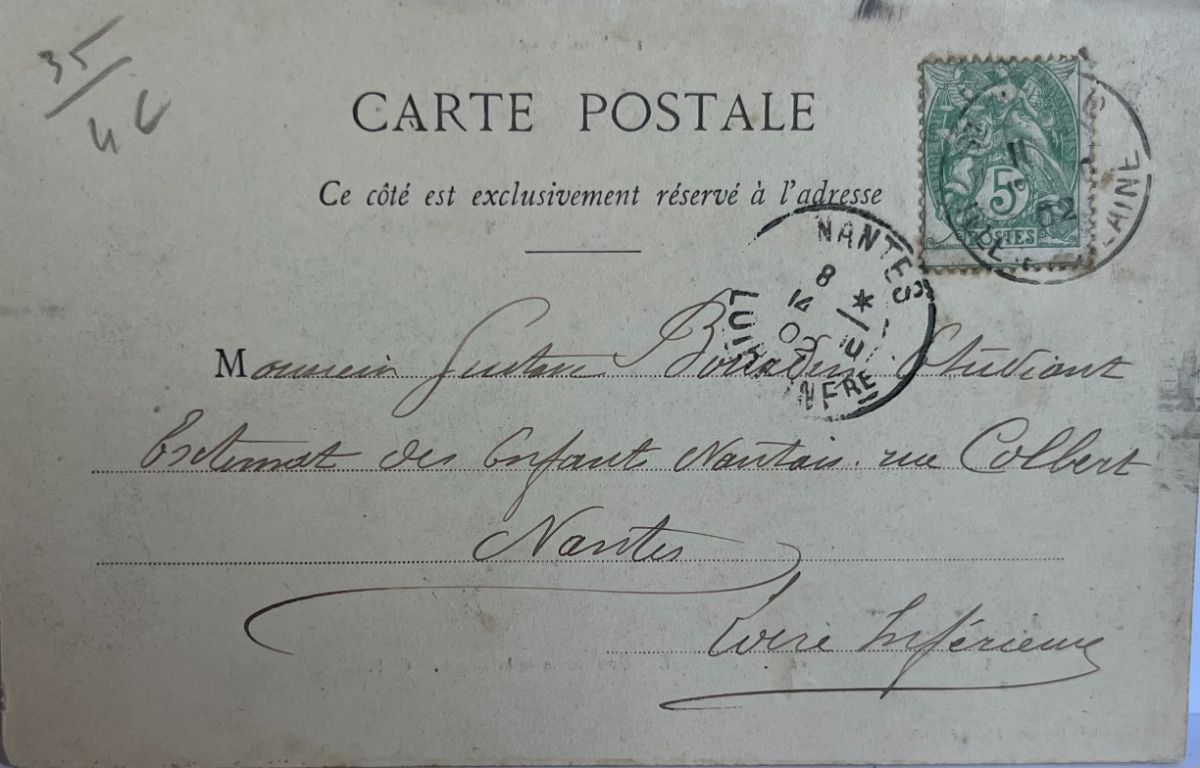 35/
44
CARTE POSTALE
Ce côté est exclusivement réservé à l'adresse
5c
POSTES
11
02
ILLE VILAINE
NANTES
8
14
02
LOIRE INFRE
Monsieur Gustave Étudiant
Externat des Enfants Nantais. rue Colbert
Nantes
Loire Inférieure